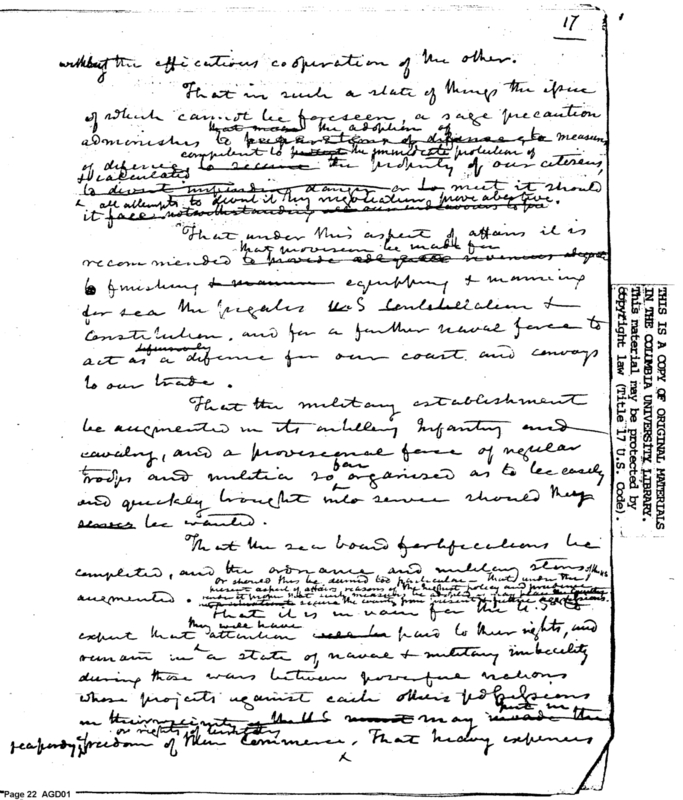 17
without the efficatious cooperation of the other.
That in such a state of things the issue
of which cannot be foreseen, a sage precaution
that made the adoption of
admonishes to preparations of defence, to measures
competent to protect the immediate protection of
of defence to secure the property of our citizens,
& calculated
to divert impending danger or to meet it should
all attempts to divert it by negotiation prove abortive.
it
That under this aspect of affairs it is
that provision be made for
recommended to provide adequate revenues
to finishing & equipping & manning
for sea the frigates US Constellation &
Constitution, and for a further naval force to
defensively
act as a defence for our coast and convoys
to our trade.
That the military establishment
be augmented in its artillery Infantry and
cavalry, and a provisional force of regular
far
troops and militia so organised as to be easily
and quickly brought into service should they
be wanted.
That the sea board fortifications be
completed, and the ordnance and military stores
or should this be deemed too particular - that under the
present aspect of affairs, reasons of the
augmented.
secure the country from present or future
That it is in vain for the U.S. to
they will have
expect that attention paid to their rights, and
remain in a state of naval & military imbecility
during those wars between powerful nations
whose projects against each others possessions
put in
in the vicinity of the US may invade the
or rights of
jeopardy freedom of their Commerce. That heavy expences
x
THIS IS A COPY OF ORIGINAL MATERIALS
IN THE COLUMBIA UNIVERSITY LIBRARY.
This material may be protected by
copyright law (Title 17 U.S. Code).
Page 22 AGD01